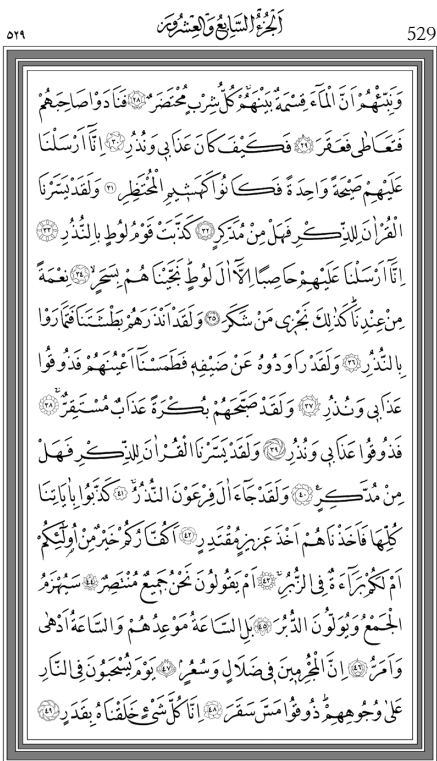 ٥٢٩ اَلْجُزْءُ السَّابِعُ وَالْعِشْرُونَ 529
وَنَبِّئْهُمْ اَنَّ الْمَآءَ قِسْمَةٌ بَيْنَهُمْۚ كُلُّ شِرْبٍ مُحْتَضَرٌ ﴿٢٨﴾ فَنَادَوْا صَاحِبَهُمْ
فَتَعَاطٰى فَعَقَرَ ﴿٢٩﴾ فَكَيْفَ كَانَ عَذَابٖى وَنُذُرِ ﴿٣٠﴾ اِنَّٓا اَرْسَلْنَا
عَلَيْهِمْ صَيْحَةً وَاحِدَةً فَكَانُوا كَهَشٖيمِ الْمُحْتَظِرِ ﴿٣١﴾ وَلَقَدْ يَسَّرْنَا
الْقُرْاٰنَ لِلذِّكْرِ فَهَلْ مِنْ مُدَّكِرٍ ﴿٣٢﴾ كَذَّبَتْ قَوْمُ لُوطٍ بِالنُّذُرِ ﴿٣٣﴾
اِنَّٓا اَرْسَلْنَا عَلَيْهِمْ حَاصِبًا اِلَّٓا اٰلَ لُوطٍؕ نَجَّيْنَاهُمْ بِسَحَرٍۙ ﴿٣٤﴾ نِعْمَةً
مِنْ عِنْدِنَاؕ كَذٰلِكَ نَجْزٖى مَنْ شَكَرَ ﴿٣٥﴾ وَلَقَدْ اَنْذَرَهُمْ بَطْشَتَنَا فَتَمَارَوْا
بِالنُّذُرِ ﴿٣٦﴾ وَلَقَدْ رَاوَدُوهُ عَنْ ضَيْفِهٖ فَطَمَسْنَٓا اَعْيُنَهُمْ فَذُوقُوا
عَذَابٖى وَنُذُرِ ﴿٣٧﴾ وَلَقَدْ صَبَّحَهُمْ بُكْرَةً عَذَابٌ مُسْتَقِرٌّۚ ﴿٣٨﴾
فَذُوقُوا عَذَابٖى وَنُذُرِ ﴿٣٩﴾ وَلَقَدْ يَسَّرْنَا الْقُرْاٰنَ لِلذِّكْرِ فَهَلْ
مِنْ مُدَّكِرٍ ﴿٤٠﴾ وَلَقَدْ جَٓاءَ اٰلَ فِرْعَوْنَ النُّذُرُۚ ﴿٤١﴾ كَذَّبُوا بِاٰيَاتِنَا
كُلِّهَا فَاَخَذْنَاهُمْ اَخْذَ عَزٖيزٍ مُقْتَدِرٍ ﴿٤٢﴾ اَكُفَّارُكُمْ خَيْرٌ مِنْ اُولٰٓئِكُمْ
اَمْ لَكُمْ بَرَٓاءَةٌ فِى الزُّبُرِۚ ﴿٤٣﴾ اَمْ يَقُولُونَ نَحْنُ جَمٖيعٌ مُنْتَصِرٌ ﴿٤٤﴾ سَيُهْزَمُ
الْجَمْعُ وَيُوَلُّونَ الدُّبُرَ ﴿٤٥﴾ بَلِ السَّاعَةُ مَوْعِدُهُمْ وَالسَّاعَةُ اَدْهٰى
وَاَمَرُّ ﴿٤٦﴾ اِنَّ الْمُجْرِمٖينَ فٖى ضَلَالٍ وَسُعُرٍۘ ﴿٤٧﴾ يَوْمَ يُسْحَبُونَ فِى النَّارِ
عَلٰى وُجُوهِهِمْؕ ذُوقُوا مَسَّ سَقَرَ ﴿٤٨﴾ اِنَّا كُلَّ شَىْءٍ خَلَقْنَاهُ بِقَدَرٍ ﴿٤٩﴾